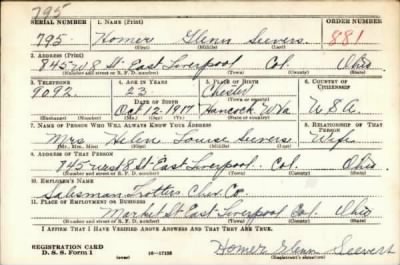 795
SERIAL NUMBER 1. NAME (Print) ORDER NUMBER
795 Homer Glenn Seevers 881
(First) (Middle) (Last)
2. ADDRESS (Print)
845 W 8 St. East Liverpool Col. Ohio
(Number and street or R. F. D. number) (Town) (County) (State)
3. TELEPHONE 4. AGE IN YEARS 5. PLACE OF BIRTH 6. COUNTRY OF CITIZENSHIP
9092 23 Chester
DATE OF BIRTH (Town or county)
Oct 12-1917 Hancock W Va U.S.A.
(Exchange) (Number) (Mo.) (Day) (Yr.) (State or country)
7. NAME OF PERSON WHO WILL ALWAYS KNOW YOUR ADDRESS 8. RELATIONSHIP OF THAT PERSON
Mrs Helen Louise Seevers Wife
(Mr., Mrs., Miss) (First) (Middle) (Last)
9. ADDRESS OF THAT PERSON
745 West 8 St. East Liverpool. Col. Ohio
(Number and street or R. F. D. number) (Town) (County) (State)
10. EMPLOYER'S NAME
Salesman Trotters Chev. Co.
11. PLACE OF EMPLOYMENT OR BUSINESS
Market St East Liverpool Col. Ohio
(Number and street or R. F. D. number) (Town) (County) (State)
I AFFIRM THAT I HAVE VERIFIED ABOVE ANSWERS AND THAT THEY ARE TRUE.
REGISTRATION CARD
D. S. S. Form 1 (over) Homer Glenn Seevers
(Registrant's signature)